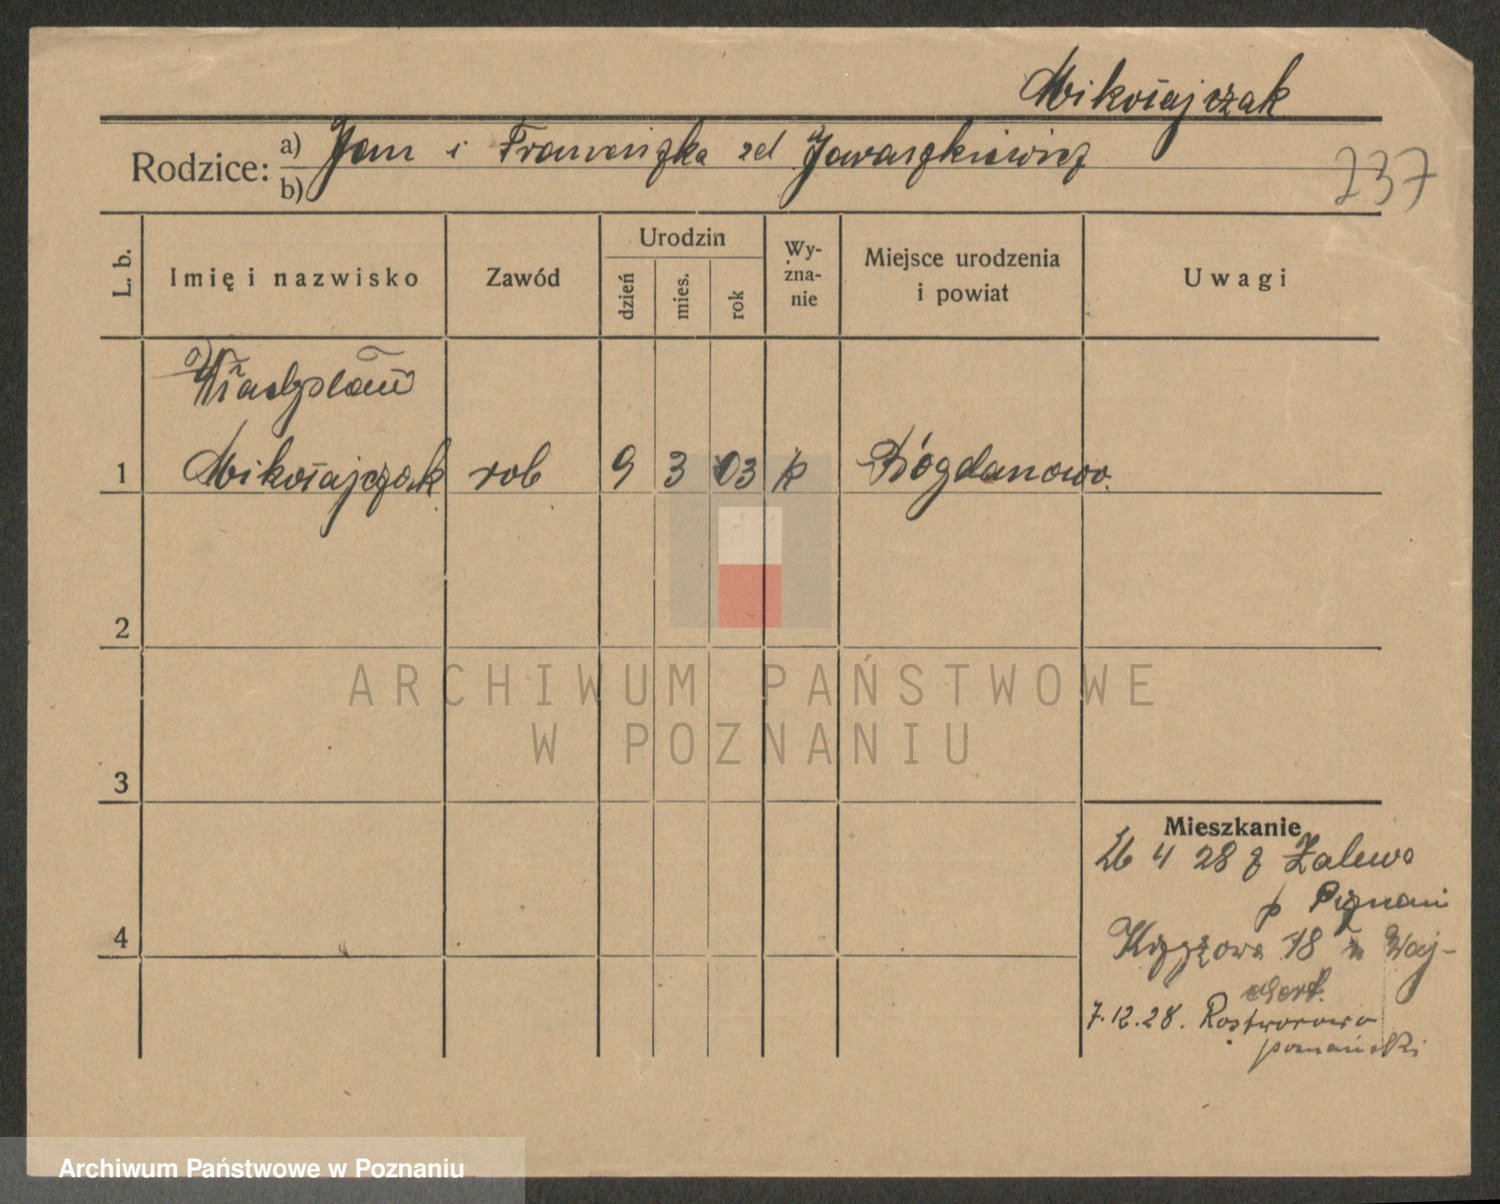 Mikołajczak
Rodzice: a) Jan i Franciszka zd Jawaszkiewicz
b)
237
L. b.
Imię i nazwisko
Zawód
Urodzin
dzień
mies.
rok
Wy-
zna-
nie
Miejsce urodzenia
i powiat
Uwagi
Władysław
1 Mikołajczak rob 9 3 03 k Bógdanowo
2
3
4
Mieszkanie
26 4 28 z Zalewo
p Poznań
18
7.12.28. Rostworowo
poznański
ARCHIWUM PAŃSTWOWE
W POZNANIU
Archiwum Państwowe w Poznaniu